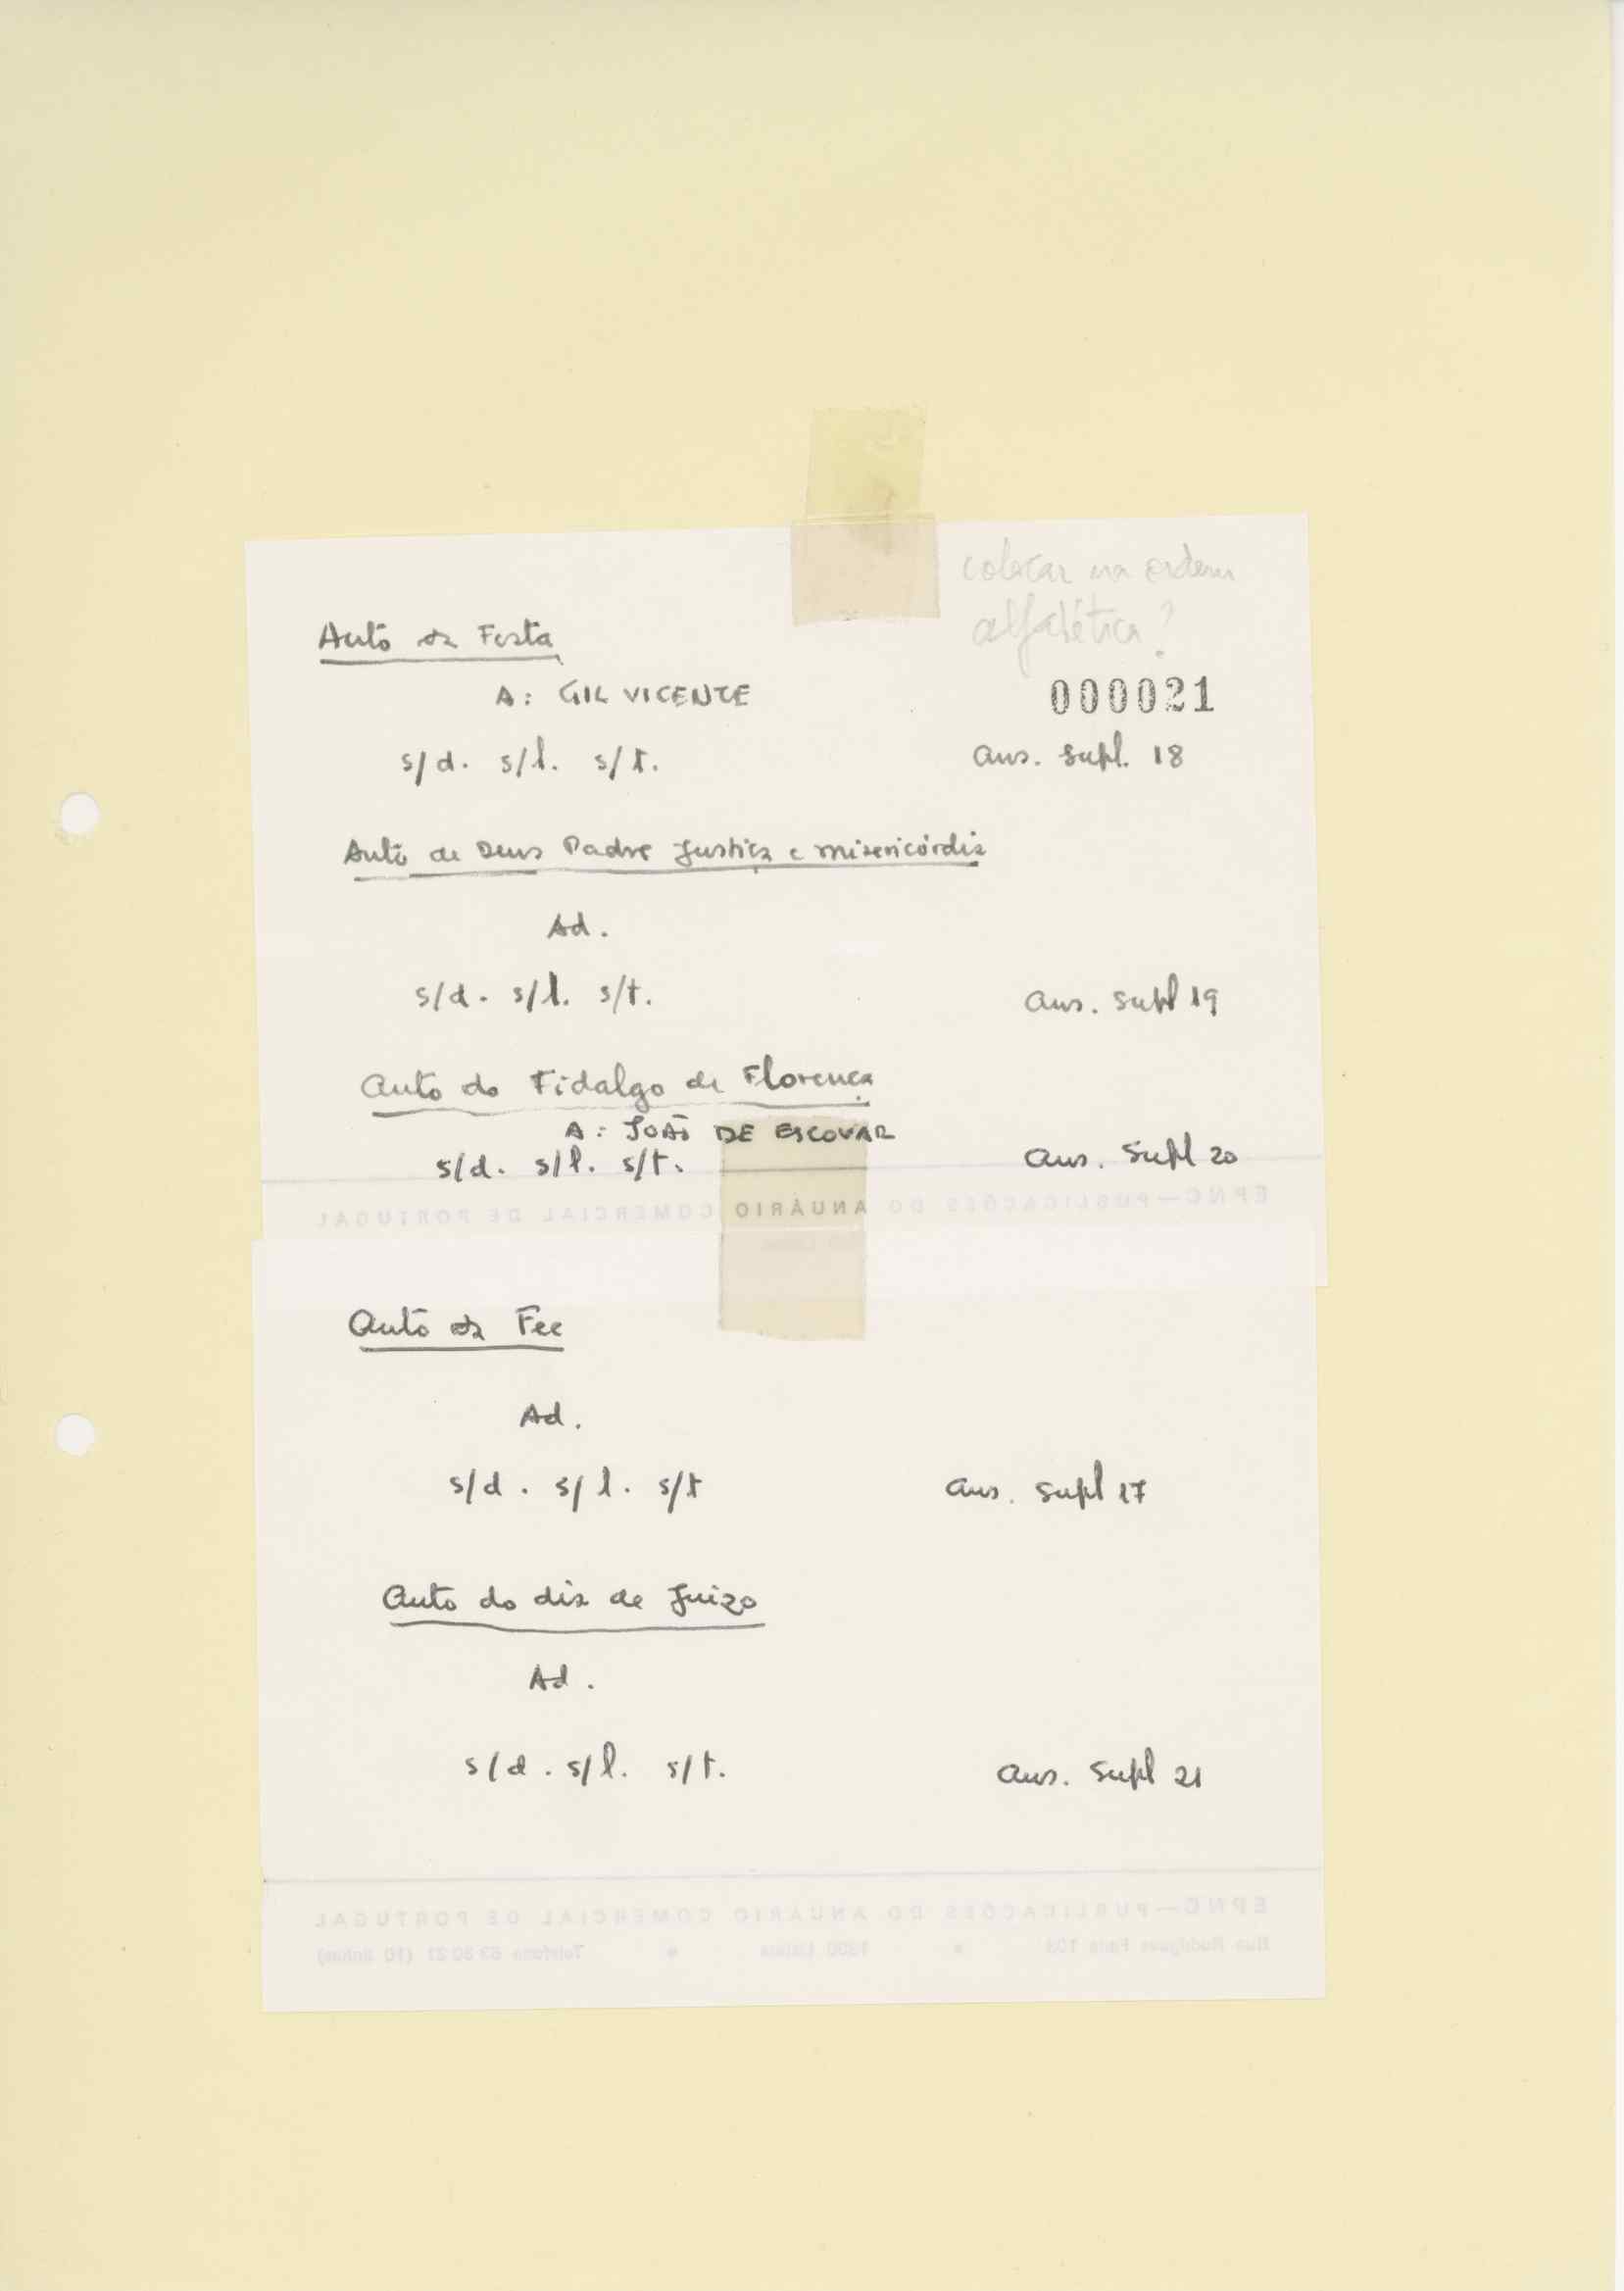 colocar na ordem
alfabética?
Auto da Festa
A: GIL VICENTE
000021
s/d. s/l. s/t. Aus. Supl. 18
Auto de Deus Padre Justiça e misericórdia
Ad.
s/d. s/l. s/t. Aus. Supl 19
Auto do Fidalgo de Florença
A: JOÃO DE ESCOVAR
s/d. s/l. s/t. Aus. Supl 20
EPNC—PUBLICAÇÕES DO ANUÁRIO COMERCIAL DE PORTUGAL
Auto da Fee
Ad.
s/d. s/l. s/t Aus. Supl 17
Auto do dia de Juizo
Ad.
s/d. s/l. s/t. Aus. Supl 21
EPNC—PUBLICAÇÕES DO ANUÁRIO COMERCIAL DE PORTUGAL
Rua Rodrigues Faria 103 • 1300 Lisboa • Telefone (10 linhas)